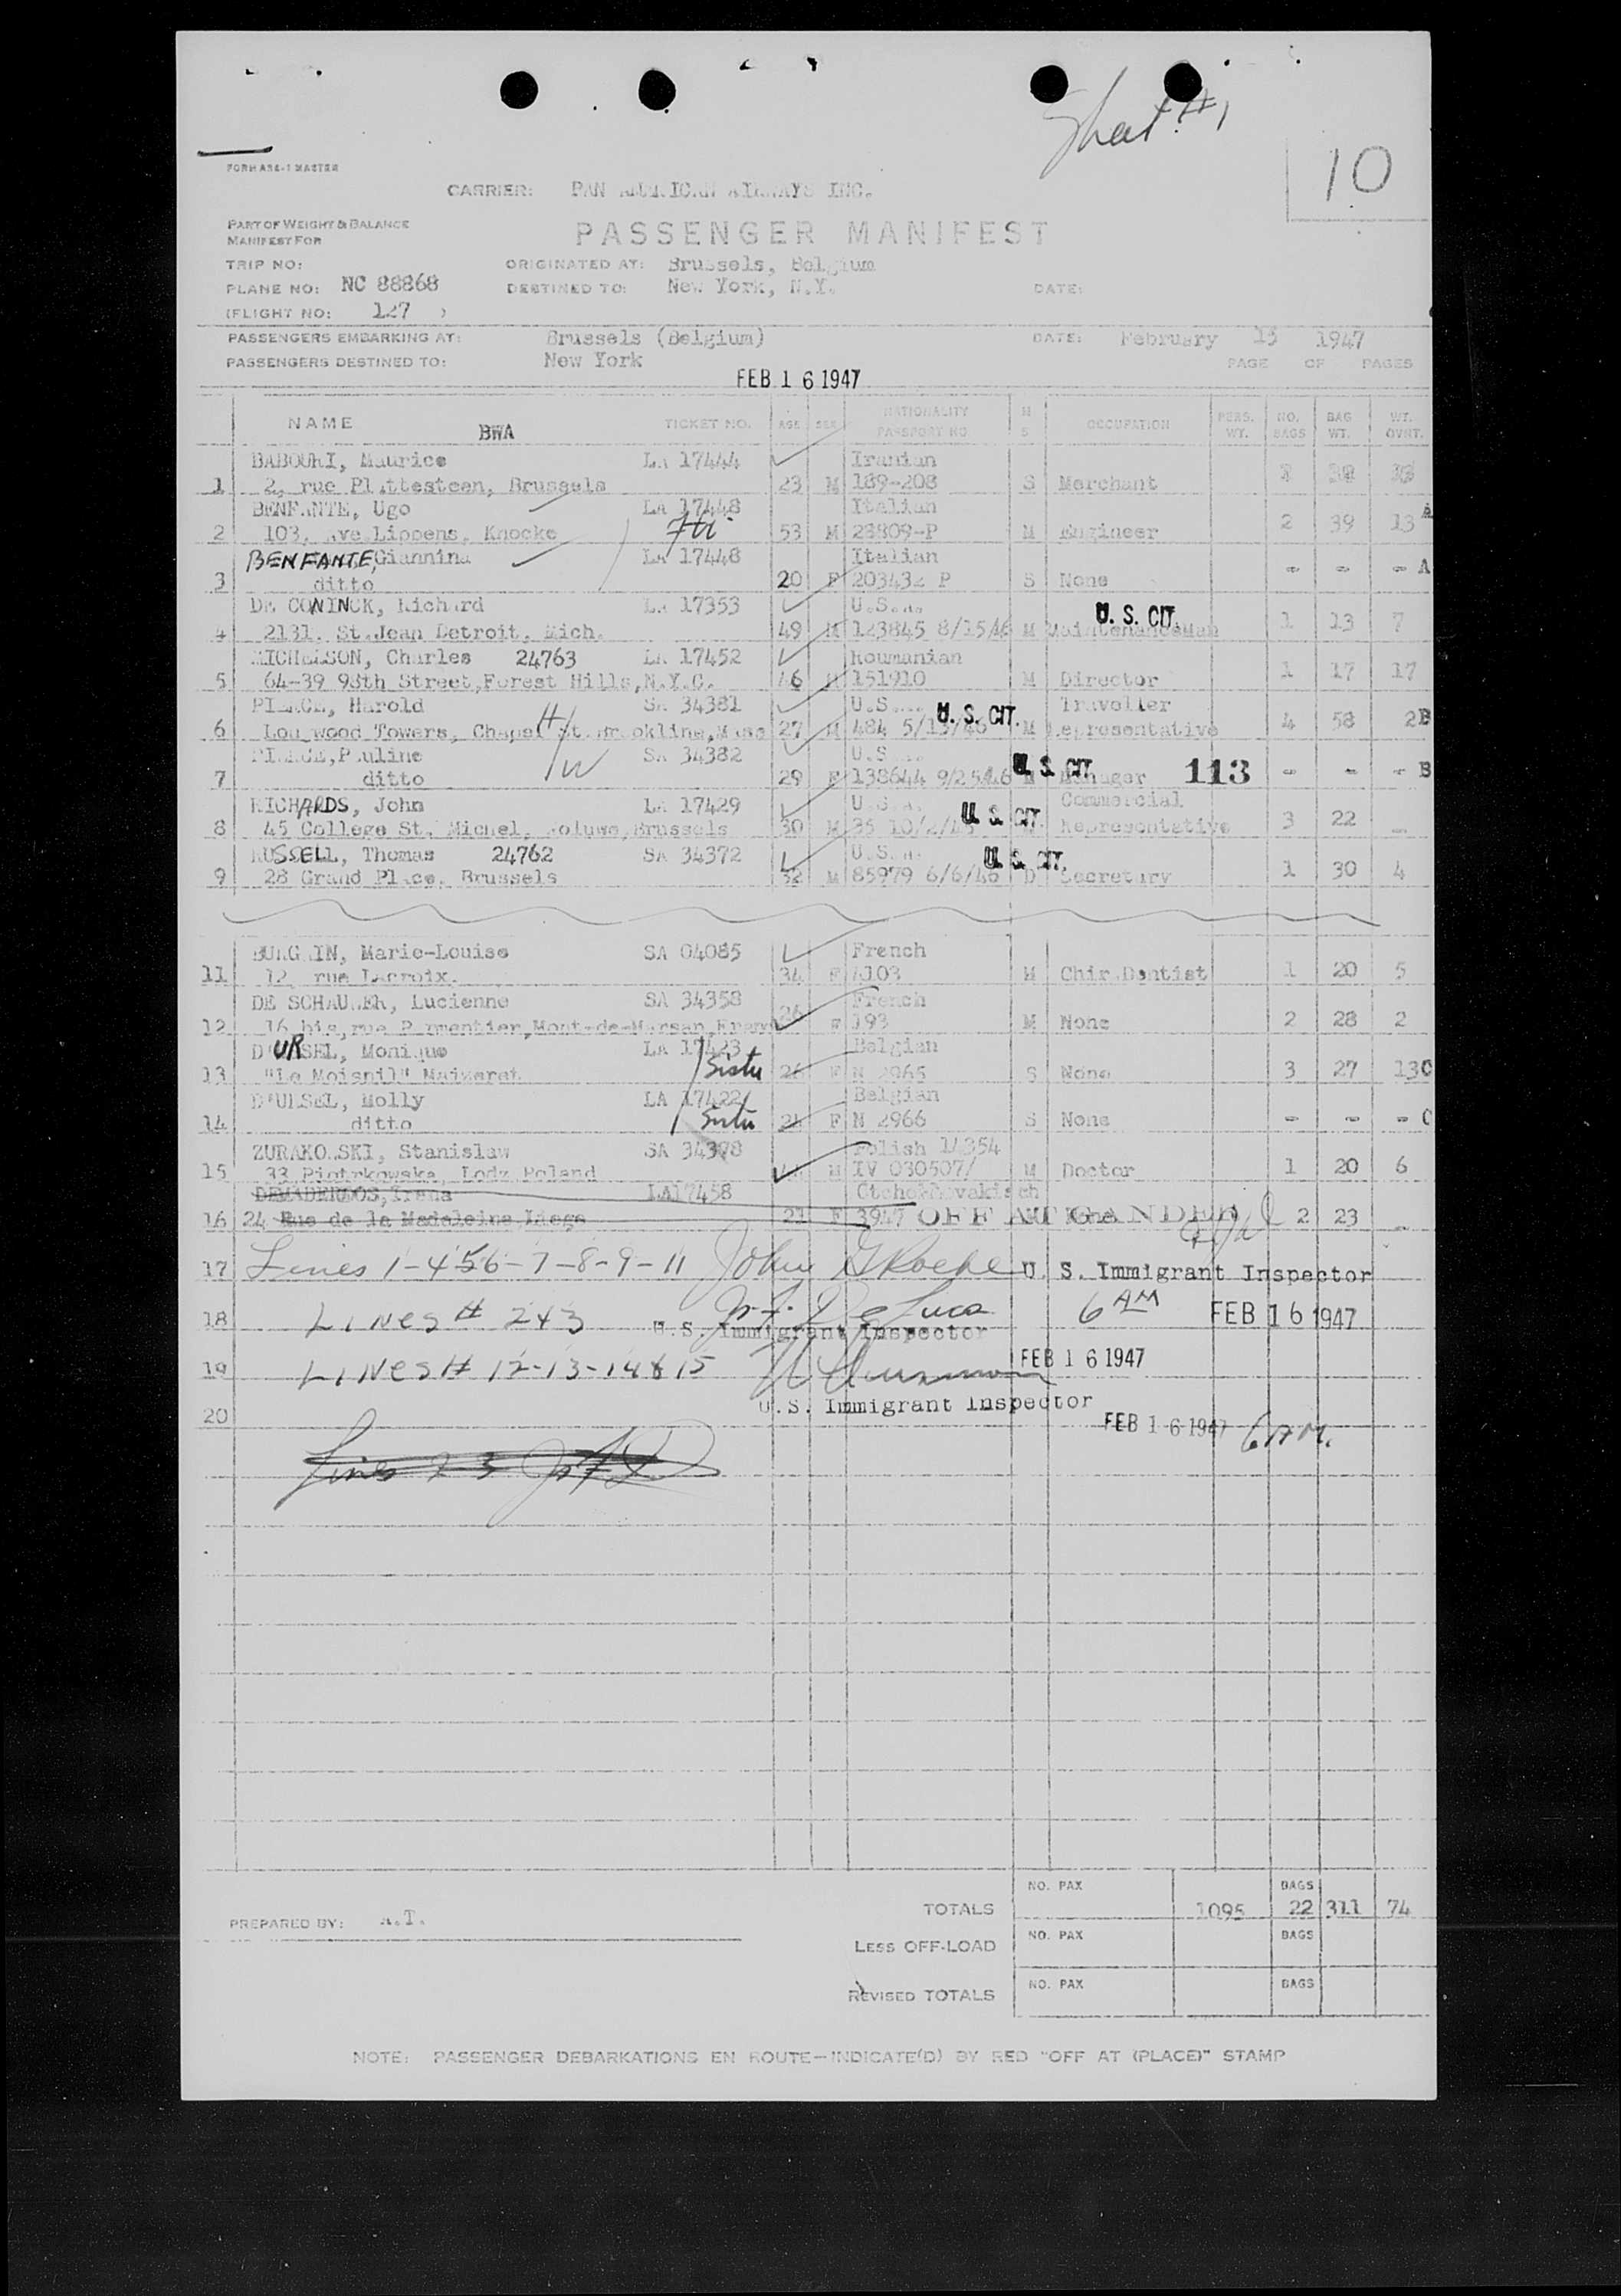 Sheet #1
10
FORM ASE-1 MASTER
CARRIER: PAN AMERICAN AIRWAYS INC.
PART OF WEIGHT & BALANCE
MANIFEST FOR
PASSENGER MANIFEST
TRIP NO: ORIGINATED AT: Brussels, Belgium
PLANE NO: NC 88868 DESTINED TO: New York, N.Y. DATE:
(FLIGHT NO: 127 )
PASSENGERS EMBARKING AT: Brussels (Belgium) DATE: February 15 1947
PASSENGERS DESTINED TO: New York PAGE OF PAGES
FEB 16 1947
NAME BWA TICKET NO. AGE SEX NATIONALITY PASSPORT NO M S OCCUPATION PERS. WT. NO. BAGS BAG WT. WT. OVRT.
BABOURI, Maurice LA 17444 Iranian
1 2, rue Plattesteen, Brussels 23 M 189-208 S Merchant
BENFANTE, Ugo LA 17448 Italian
2 103, Ave Lippens, Knocke 53 M 28809-P M Engineer 2 39 13 A
BENFANTE, Giannina LA 17448 Italian
3 ditto 20 F 203432 P S None - - - A
DE CONINCK, Richard LA 17353 U.S.A. U. S. CIT.
4 2131. St.Jean Detroit, Mich. 49 M 123845 8/15/46 M MaintenanceMan 1 13 7
MICHELSON, Charles 24763 LA 17452 Roumanian
5 64-39 98th Street,Forest Hills,N.Y.C. 46 M 151910 M Director 1 17 17
PIERCE, Harold SA 34381 U.S.A. U. S. CIT. Traveller
6 Longwood Towers, Chapel St. Brookline,Mass 27 M 484 5/13/46 M Representative 4 58 2B
H/W
PIERCE,Pauline SA 34382 U.S.A. U. S. CIT.
7 ditto 29 F 138644 9/25/46 M Manager 113 - - - B
RICHARDS, John LA 17429 U.S.A. U. S. CIT. Commercial
8 45 College St. Michel, Woluwe,Brussels 30 M 35 10/2/46 Representative 3 22 _
RUSSELL, Thomas 24762 SA 34372 U.S.A. U. S. CIT.
9 28 Grand Place. Brussels 32 M 85979 6/6/46 D Secretary 1 30 4
BURGAIN, Marie-Louise SA 04085 French
11 12, rue Lacroix. 34 F 4103 M Chir.Dentist 1 20 5
DE SCHAUWER, Lucienne SA 34358 French
12 16 bis,rue Parmentier,Mont-de-Marsan,France 26 F 193 M None 2 28 2
D'URSEL, Monique LA 17423 Belgian
13 "Le Moisnil" Maizeret Sister 26 F N 2965 S None 3 27 13C
D'URSEL, Molly LA 17422 Belgian
14 ditto Sister 21 F N 2966 S None - - - C
ZURAKOWSKI, Stanislaw SA 34378 Polish 14354
15 33 Piotrkowska, Lodz Poland M IV 030507/ M Doctor 1 20 6
LA17458
16 24 Rue de la Madeleine Liege 21 F 3947 OFF AT GANDER 2 23 _
17 Lines 1-4-5-6-7-8-9-11 John G Roche U. S. Immigrant Inspector
18 Lines # 2 & 3 De Luca 6 AM FEB 16 1947
U.S. Immigrant Inspector
19 Lines # 12-13-14 & 15 FEB 16 1947
U.S. Immigrant Inspector
20 FEB 16 1947 6 AM.
Lines 2 3
NO. PAX BAGS
TOTALS 1095 22 311 74
PREPARED BY: A.T.
NO. PAX BAGS
LESS OFF-LOAD
NO. PAX BAGS
REVISED TOTALS
NOTE: PASSENGER DEBARKATIONS EN ROUTE—INDICATE(D) BY RED "OFF AT (PLACE)" STAMP